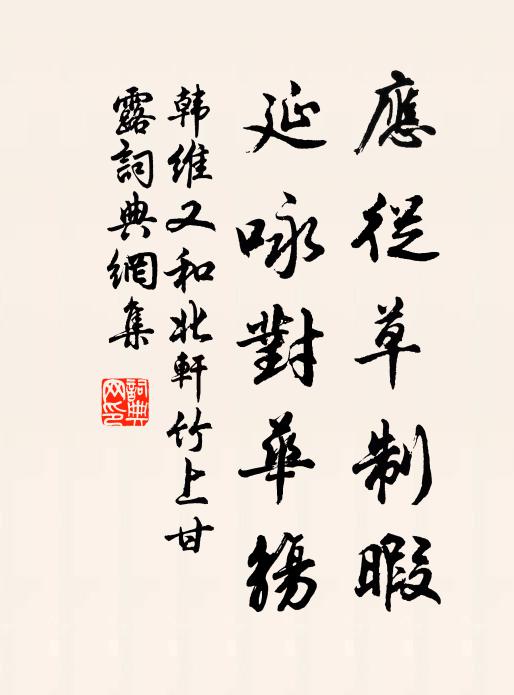 應從草制暇
延咏對華觴
韩維又和北軒竹上甘
露詞典網集
詞典网印